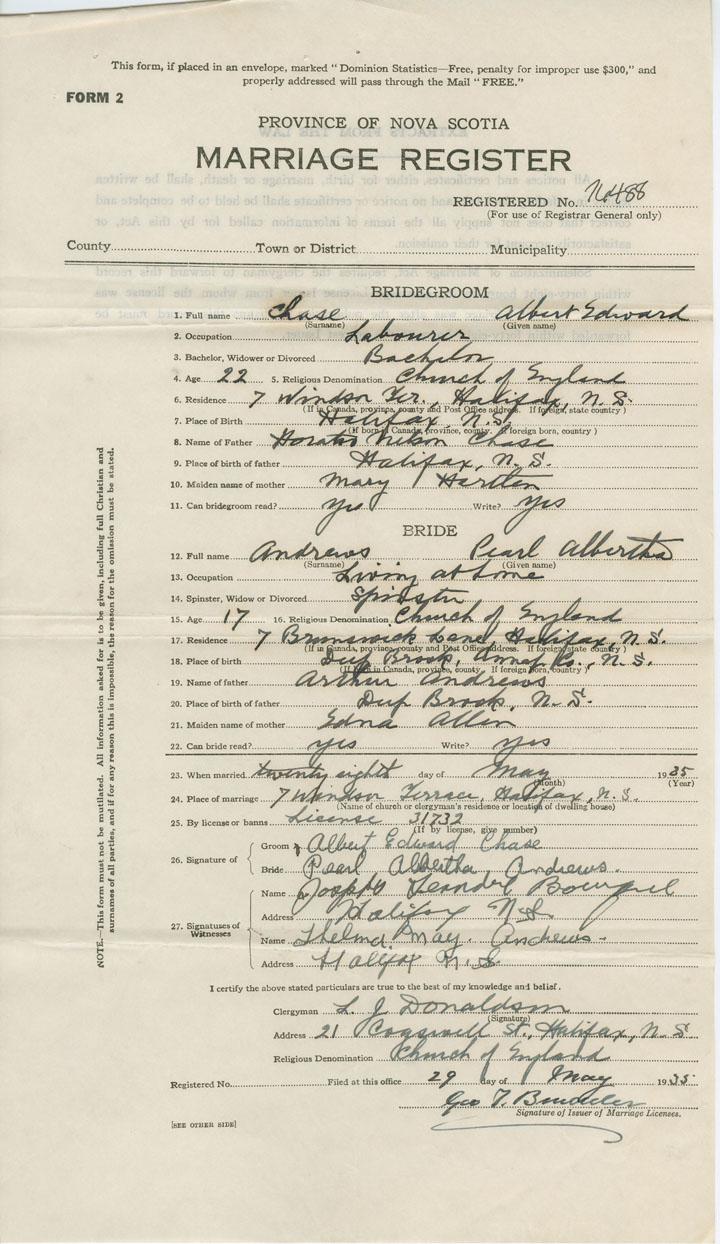 This form, if placed in an envelope, marked "Dominion Statistics—Free, penalty for improper use $300," and
properly addressed will pass through the Mail "FREE."
FORM 2
PROVINCE OF NOVA SCOTIA
MARRIAGE REGISTER
REGISTERED No. No 488
(For use of Registrar General only)
County Town or District Municipality
BRIDEGROOM
1. Full name Chase Albert Edward
(Surname) (Given name)
2. Occupation Labourer
3. Bachelor, Widower or Divorced Bachelor
4. Age 22 5. Religious Denomination Church of England
6. Residence 7 Windsor Ter., Halifax, N. S.
(If in Canada, province, county and Post Office address. If foreign, state country)
7. Place of Birth Halifax, N.S.
(If born in Canada, province, county. If foreign born, country)
8. Name of Father Horatio Nelson Chase
9. Place of birth of father Halifax, N. S.
10. Maiden name of mother Mary Hartlen
11. Can bridegroom read? yes Write? yes
BRIDE
12. Full name Andrews Pearl Albertha
(Surname) (Given name)
13. Occupation Living at home
14. Spinster, Widow or Divorced Spinster
15. Age 17 16. Religious Denomination Church of England
17. Residence 7 Brunswick Lane, Halifax, N. S.
(If in Canada, province, county and Post Office address. If foreign state country)
18. Place of birth Deep Brook, Annap. Co., N. S.
(If born in Canada, province, county. If foreign born, country)
19. Name of father Arthur Andrews
20. Place of birth of father Deep Brook, N. S.
21. Maiden name of mother Edna Allen
22. Can bride read? yes Write? yes
23. When married twenty eighth day of May 1935
(Month) (Year)
24. Place of marriage 7 Windsor Terrace, Halifax, N. S.
(Name of church or clergyman's residence or location of dwelling house)
25. By license or banns License 31732
(If by license, give number)
26. Signature of
Groom Albert Edward Chase
Bride Pearl Albertha Andrews.
27. Signatures of Witnesses
Name Leander
Address Halifax N.S.
Name Thelma May. Andrews.
Address Halifax N.S.
I certify the above stated particulars are true to the best of my knowledge and belief.
Clergyman L. J Donaldson
(Signature)
Address 21 Cogswell St., Halifax, N. S
Religious Denomination Church of England
Registered No. Filed at this office 29 day of May 1935
Geo T.
Signature of Issuer of Marriage Licenses.
[SEE OTHER SIDE]
NOTE.—This form must not be mutilated. All information asked for is to be given, including full Christian and
surnames of all parties, and if for any reason this is impossible, the reason for the omission must be stated.